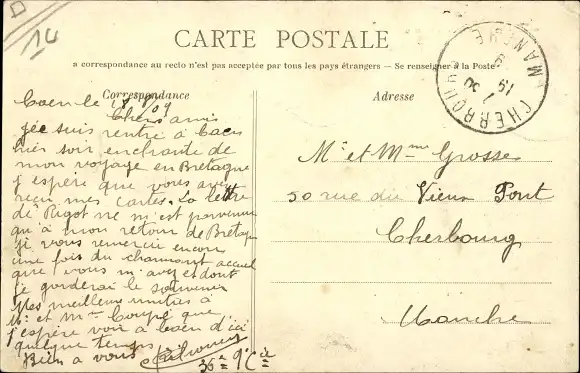 14
CARTE POSTALE
a correspondance au recto n'est pas acceptée par tous les pays étrangers — Se renseigner à la Poste
Correspondance
Adresse
CHERBOURG
MANCHE
Caen le 09
Chers amis
Je suis rentré à Caen
hier soir enchanté de
mon voyage en Bretagne
j'espère que vous avez
reçu mes cartes. La lettre
de Rigot ne m'est parvenue
qu'à mon retour de Bretagne
je vous remercie encore
une fois du charmant accueil
que vous m'avez et dont
je garderai le souvenir
Mes meilleures amitiés à
Mr et Mme Coupé que
j'espère voir à Caen d'ici
quelque temps
Bien à vous
36e 9e Cie
Mr et Mme Grosse
50 rue du Vieux Pont
Cherbourg
Manche